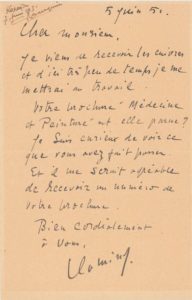 5 juin 50.
Cher monsieur,
Je viens de recevoir les cuivres
et d'ici très peu de temps je me
mettrai au travail.
Votre brochure Médecine
et Peinture est elle parue ?
Je suis curieux de voir ce
que vous avez fait passer.
Et il me serait agréable
de recevoir un numéro de
votre brochure.
Bien cordialement
à vous,
Vlaminck.